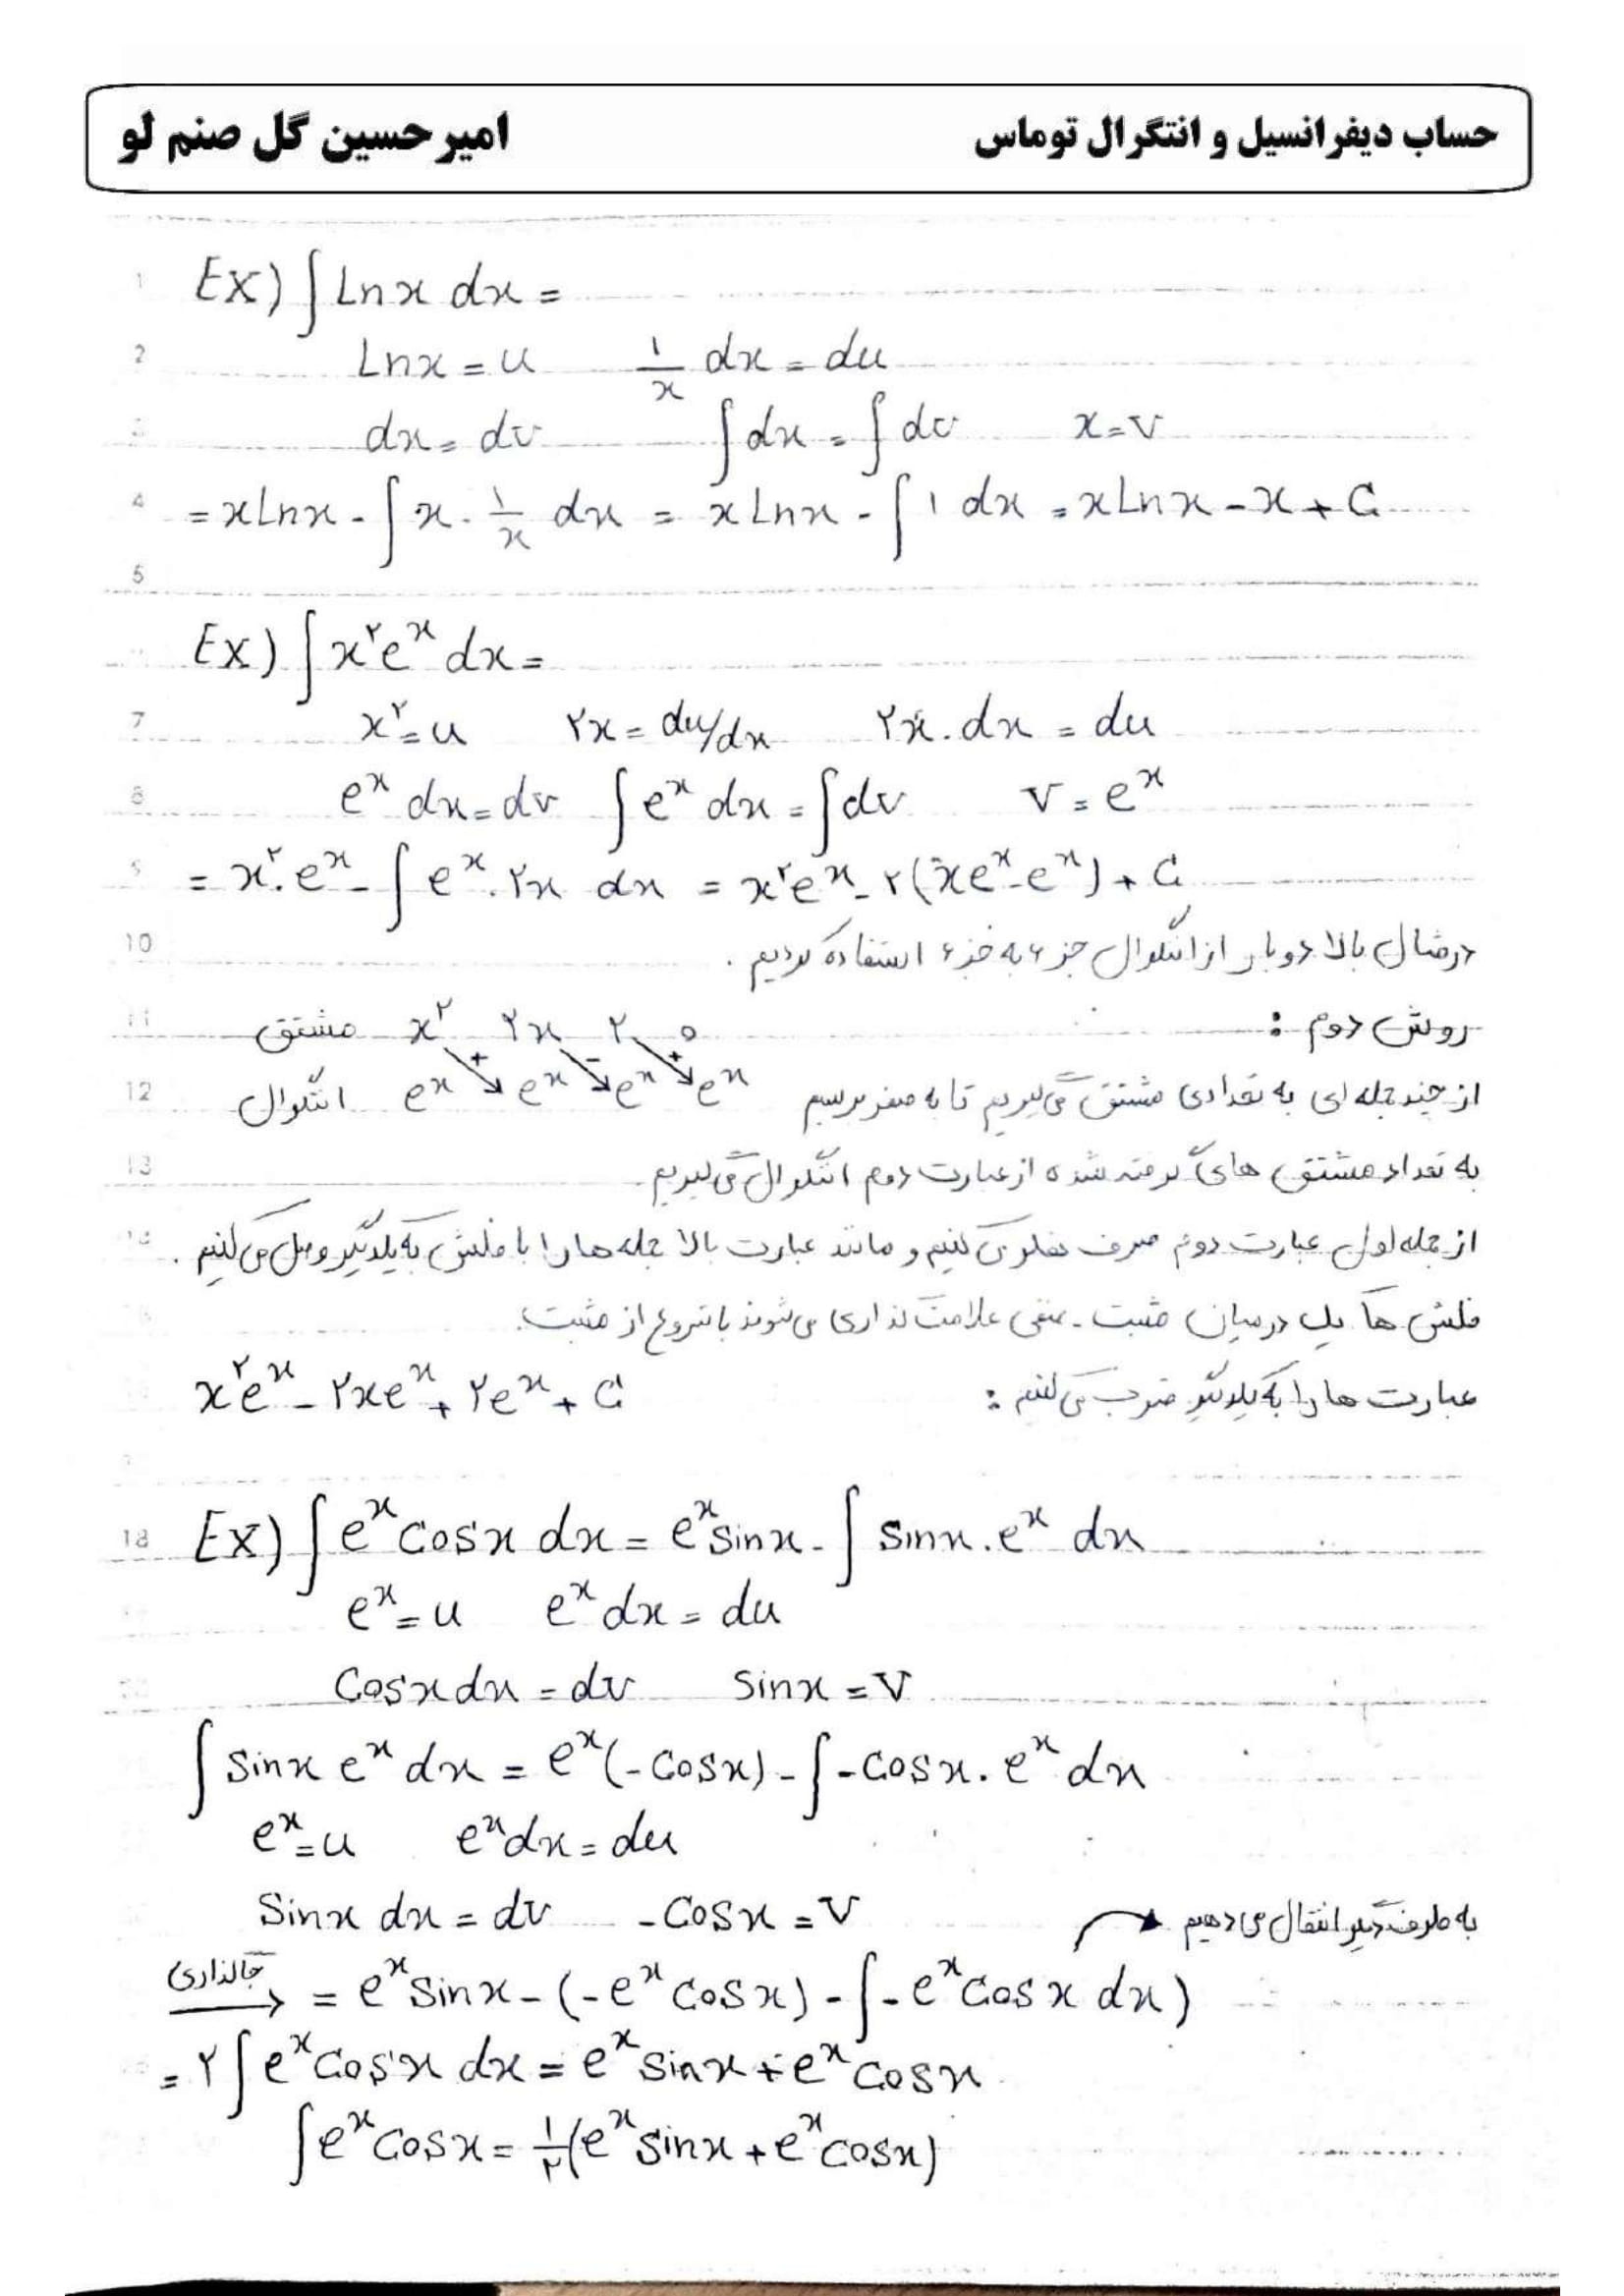 حساب دیفرانسیل و انتگرال توماس
امیرحسین گل صنم لو
1 EX) ∫ Lnx dx =
2 Lnx = u    ۱/x dx = du
3 dx = dv    ∫dx = ∫dv    x = v
4 = xLnx - ∫ x . ۱/x dx = xLnx - ∫ ۱ dx = xLnx - x + C
5
EX) ∫ x^۲ e^x dx =
7 x^۲ = u    ۲x = du/dx    ۲x . dx = du
8 e^x dx = dv    ∫ e^x dx = ∫dv    v = e^x
9 = x^۲ . e^x - ∫ e^x . ۲x dx = x^۲ e^x - ۲(xe^x - e^x) + C
10 درمثال بالا دوبار از انتگرال جزء به جزء استفاده کردیم .
11 روش دوم :
مشتق x^۲ ۲x ۲ ۰
+ - +
12 از چند جمله ای به تعدادی مشتق می گیریم تا به صفر برسیم
انتگرال e^x e^x e^x e^x
13 به تعداد مشتق های گرفته شده از عبارت دوم انتگرال می گیریم
14 از جمله اول عبارت دوم صرف نظر می کنیم و مانند عبارت بالا جمله ها را با فلش به یکدیگر وصل می کنیم .
فلش ها یک درمیان مثبت - منفی علامت گذاری می شوند با شروع از مثبت .
عبارت ها را به یکدیگر ضرب می کنیم :
x^۲ e^x - ۲xe^x + ۲e^x + C
18 EX) ∫ e^x cosx dx = e^x sinx - ∫ sinx . e^x dx
e^x = u    e^x dx = du
Cosx dx = dv    sinx = v
∫ sinx e^x dx = e^x (-cosx) - ∫ -cosx . e^x dx
e^x = u    e^x dx = du
Sinx dx = dv    -Cosx = v
به طرف دیگر انتقال می دهیم
جاگذاری → = e^x sinx - (-e^x cosx) - ∫ -e^x cosx dx)
= ۲ ∫ e^x cosx dx = e^x sinx + e^x cosx
∫ e^x cosx = ۱/۲ (e^x sinx + e^x cosx)